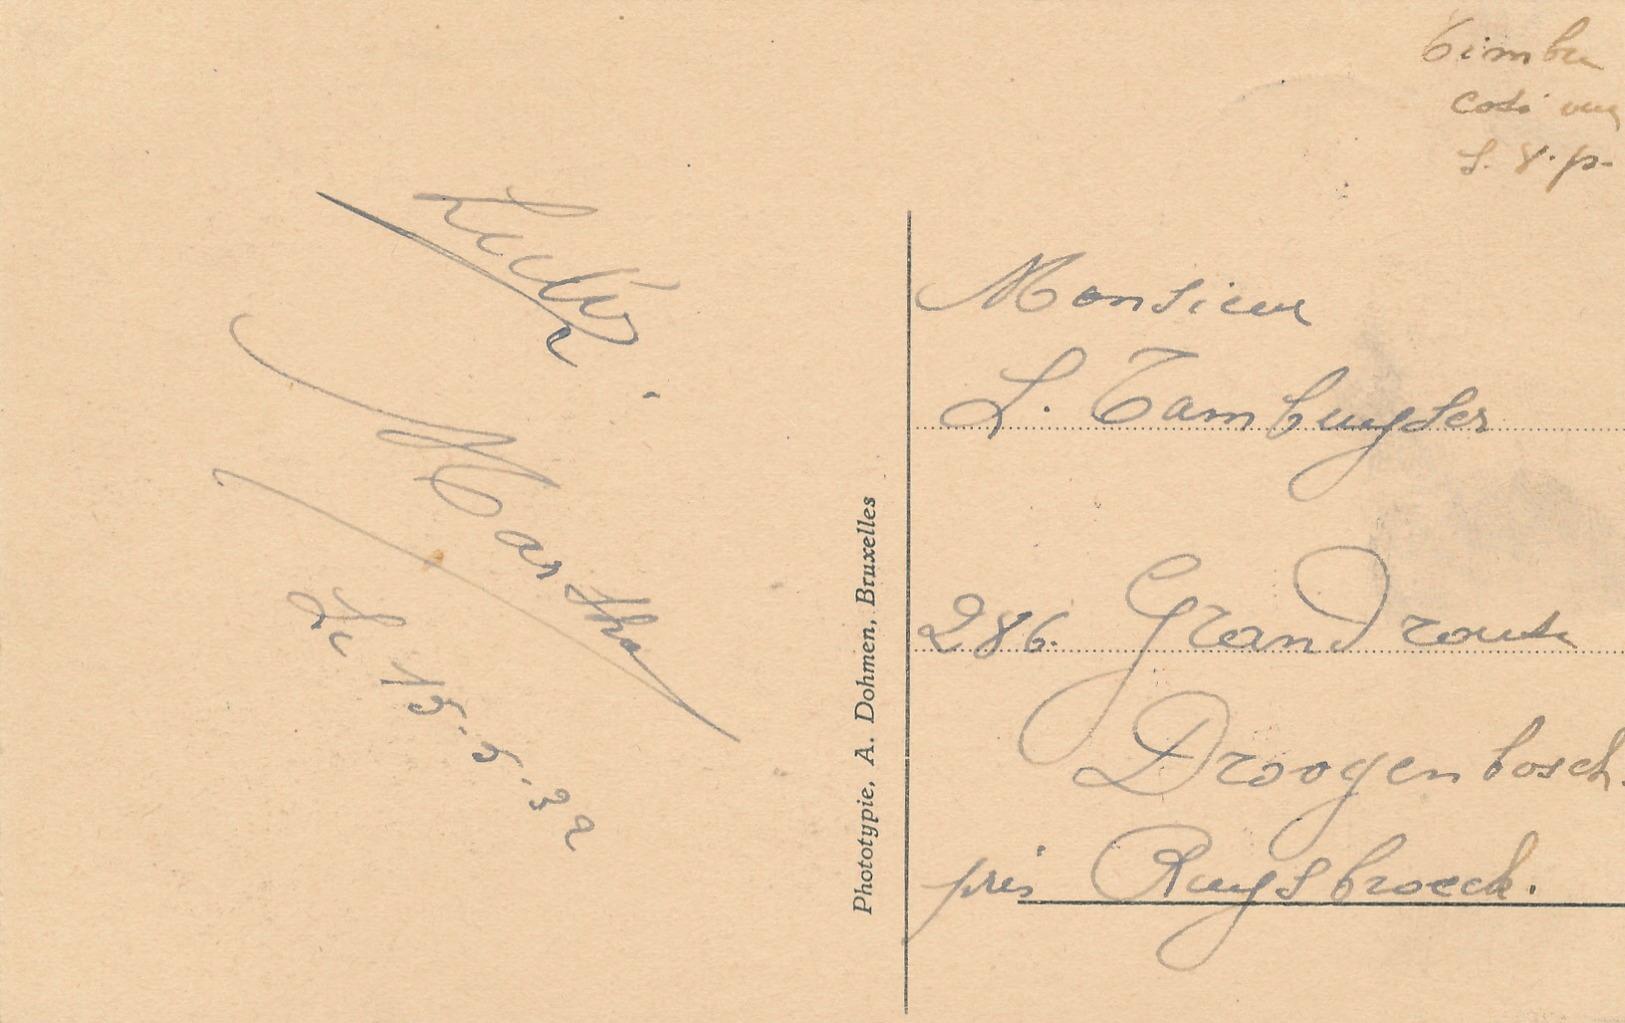 Timbre
coté vue
s. v. p.
Martha
Le 15-5-32
Phototypie, A. Dohmen, Bruxelles
Monsieur
L. Tambuyser
286. Grand route
Droogenbosch.
près Ruysbroeck.